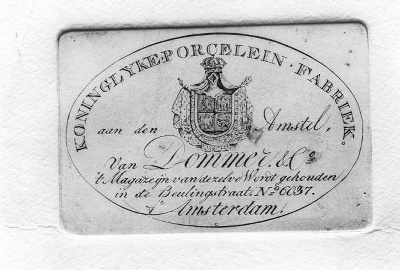 KONINGLYKE·PORCELEIN·FABRIEK.
aan den Amstel,
Van Dommer, & Co
't Magazeijn van dezelve Wordt gehouden
in de Beulingstraat No 6037.
't Amsterdam.